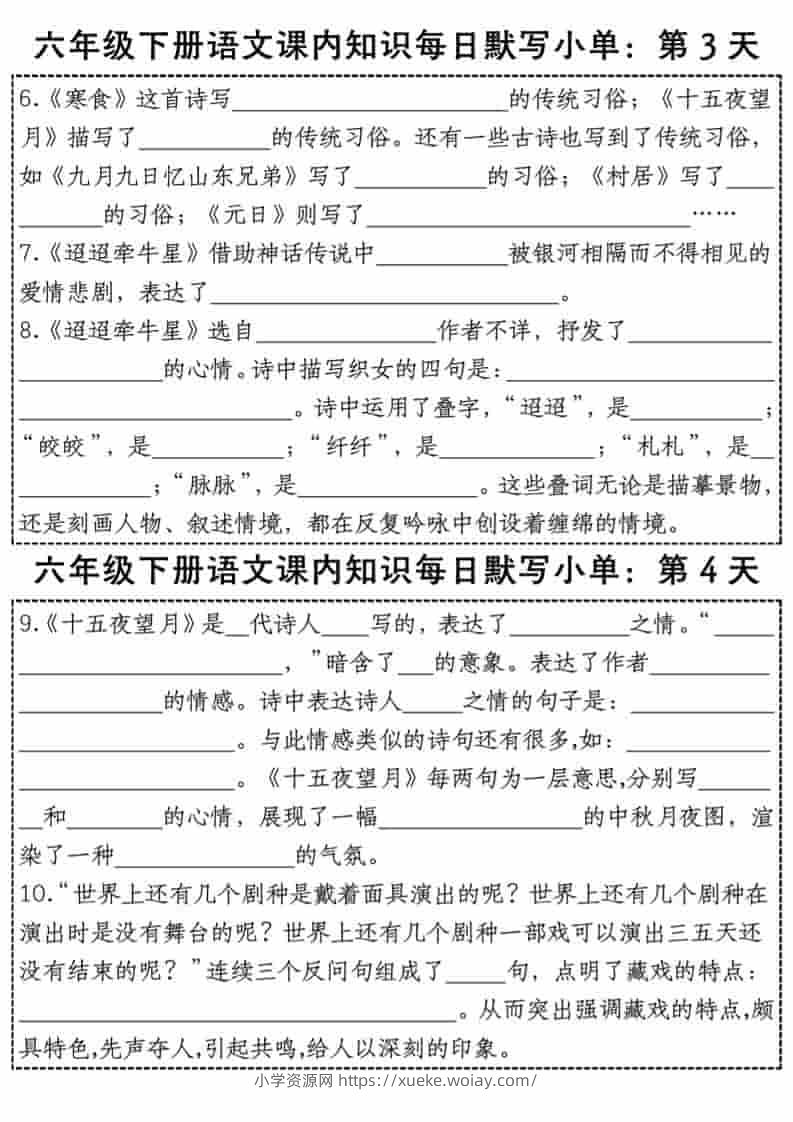 六年级下册语文课内知识每日默写小单：第 3 天
6.《寒食》这首诗写______________________的传统习俗；《十五夜望
月》描写了__________的传统习俗。还有一些古诗也写到了传统习俗，
如《九月九日忆山东兄弟》写了__________的习俗；《村居》写了____
______的习俗；《元日》则写了__________________________……
7.《迢迢牵牛星》借助神话传说中__________被银河相隔而不得相见的
爱情悲剧，表达了____________________________。
8.《迢迢牵牛星》选自______________作者不详，抒发了___________
___________的心情。诗中描写织女的四句是：_____________________
______________________。诗中运用了叠字，“迢迢”，是__________；
“皎皎”，是__________；“纤纤”，是____________；“札札”，是__
__________；“脉脉”，是______________。这些叠词无论是描摹景物，
还是刻画人物、叙述情境，都在反复吟咏中创设着缠绵的情境。
六年级下册语文课内知识每日默写小单：第 4 天
9.《十五夜望月》是__代诗人____写的，表达了_________之情。“_____
_____________________，”暗含了___的意象。表达了作者__________
___________的情感。诗中表达诗人_____之情的句子是：___________
_________________。与此情感类似的诗句还有很多,如：____________
_________________。《十五夜望月》每两句为一层意思,分别写______
__和________的心情，展现了一幅________________的中秋月夜图，渲
染了一种______________的气氛。
10.“世界上还有几个剧种是戴着面具演出的呢？世界上还有几个剧种在
演出时是没有舞台的呢？世界上还有几个剧种一部戏可以演出三五天还
没有结束的呢？”连续三个反问句组成了_____句，点明了藏戏的特点：
___________________________________。从而突出强调藏戏的特点,颇
具特色,先声夺人,引起共鸣,给人以深刻的印象。
小学资源网 https://xueke.woiay.com/